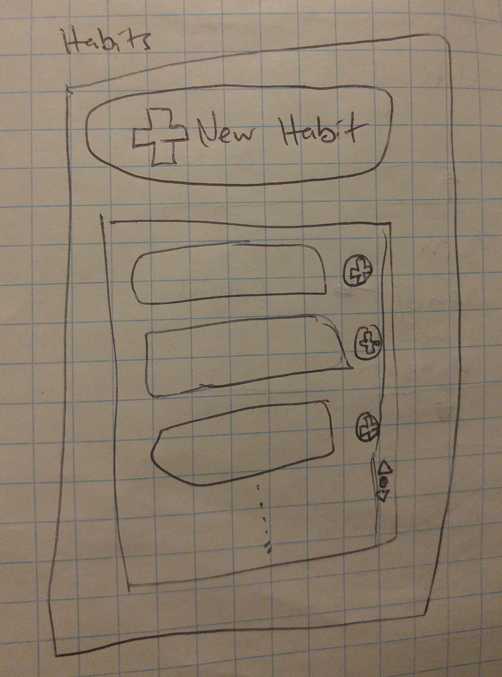 Habits
New Habit